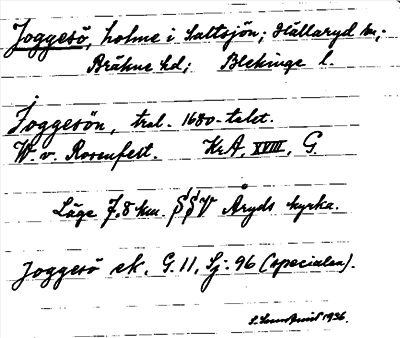 Joggesö, holme i Saltsjön; Hällaryd sn;
Bräkne hd; Blekinge l.
Joggesön, trol. 1680-talet.
W. v. Rosenfelt. KrA, XVIII, G.
Läge 7,8 km. SSV Åryds kyrka.
Joggesö ek. G. 11, Sj: 96 (specialen).
1936.